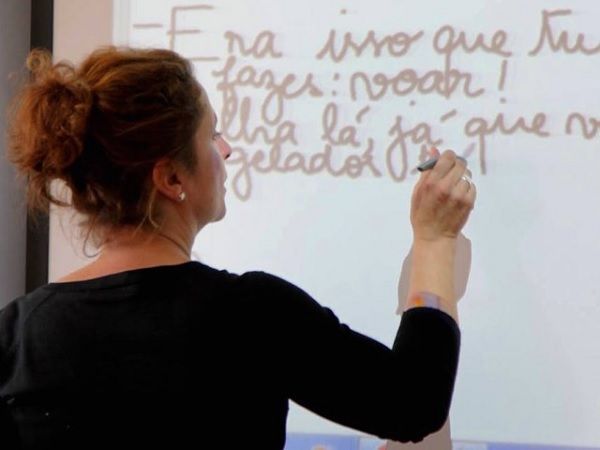 - Era isso que tu
fazes: voar!
Olha lá, já que v
gelador,